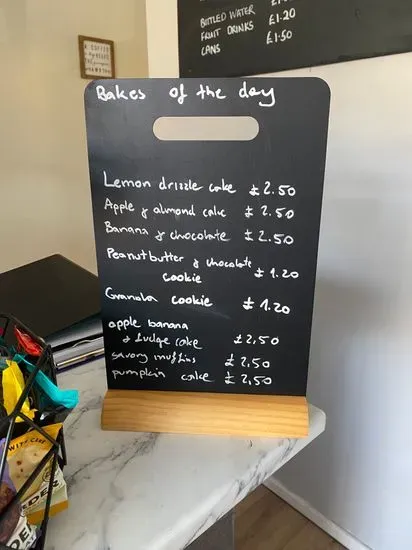 BOTTLED WATER £1.20
FRUIT DRINKS £1.50
CANS
Bakes of the day
Lemon drizzle cake £2.50
Apple & almond cake £2.50
Banana & chocolate £2.50
Peanutbutter & chocolate
cookie £1.20
Granola cookie £1.20
apple banana
& fudge cake £2,50
savory muffins £2,50
pumpkin cake £2,50
WITH CARE
DER